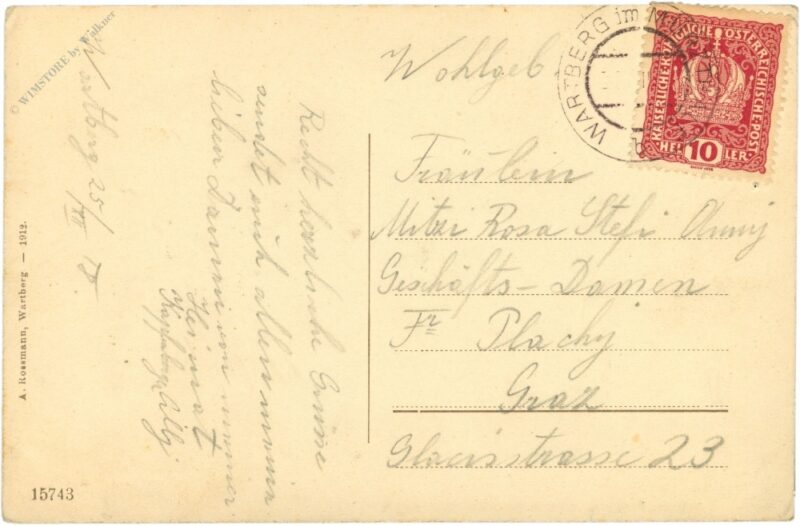 © WIMSTORE by Walkner
Wartberg 25/
VII 18
Recht herzliche Grüsse
sendet euch allen meinen
lieben Damen von meiner
Heimat
A. Rossmann, Wartberg — 1912.
15743
WARTBERG im Mürz
KAISERLICHE KÖNIGLICHE ÖSTERREICHISCHE POST
HELLER
10
Wohlgeb
Fräulein
Mitzi Rosa Stefi
Geschäfts-Damen
Fr Plachy
Graz
Glacisstrasse 23